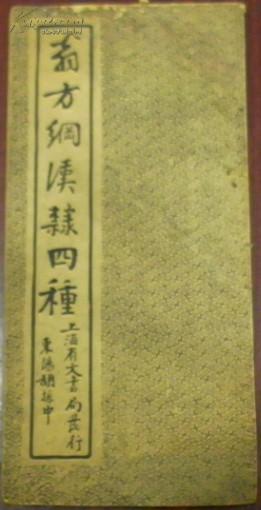 翁方綱漢隸四種
上海有文書局發行
東陽胡振中